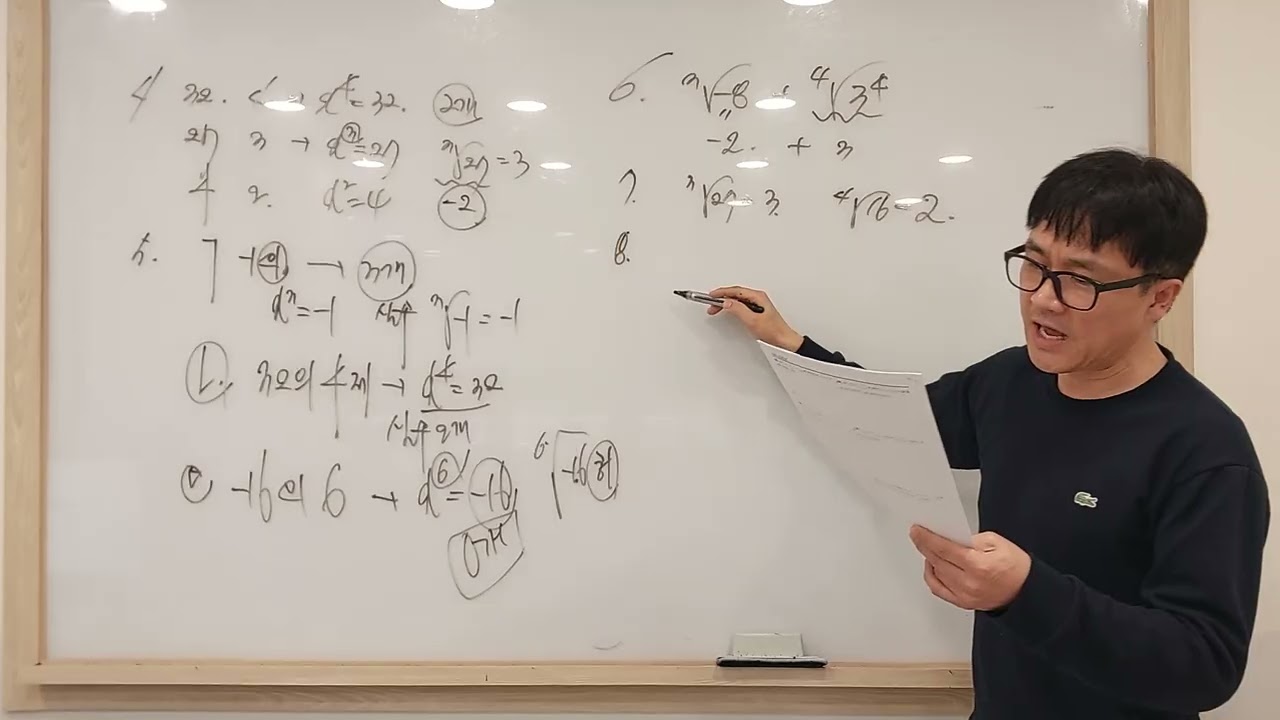 4 32. 4 → x⁴=32. 2개
27 3 → x³=27 ³√27=3
4 2. x²=4 -2
5. ㄱ -1의 → 3개
x³=-1 실수 ³√-1=-1
ㄴ. 32의 4제 → x⁴=32
실수 2개
ㄷ -16의 6 → x⁶=-16 ⁶√-16
0개
6. ³√-8 + ⁴√3⁴
-2. + 3
7. ³√27=3. ⁴√16=2.
8.